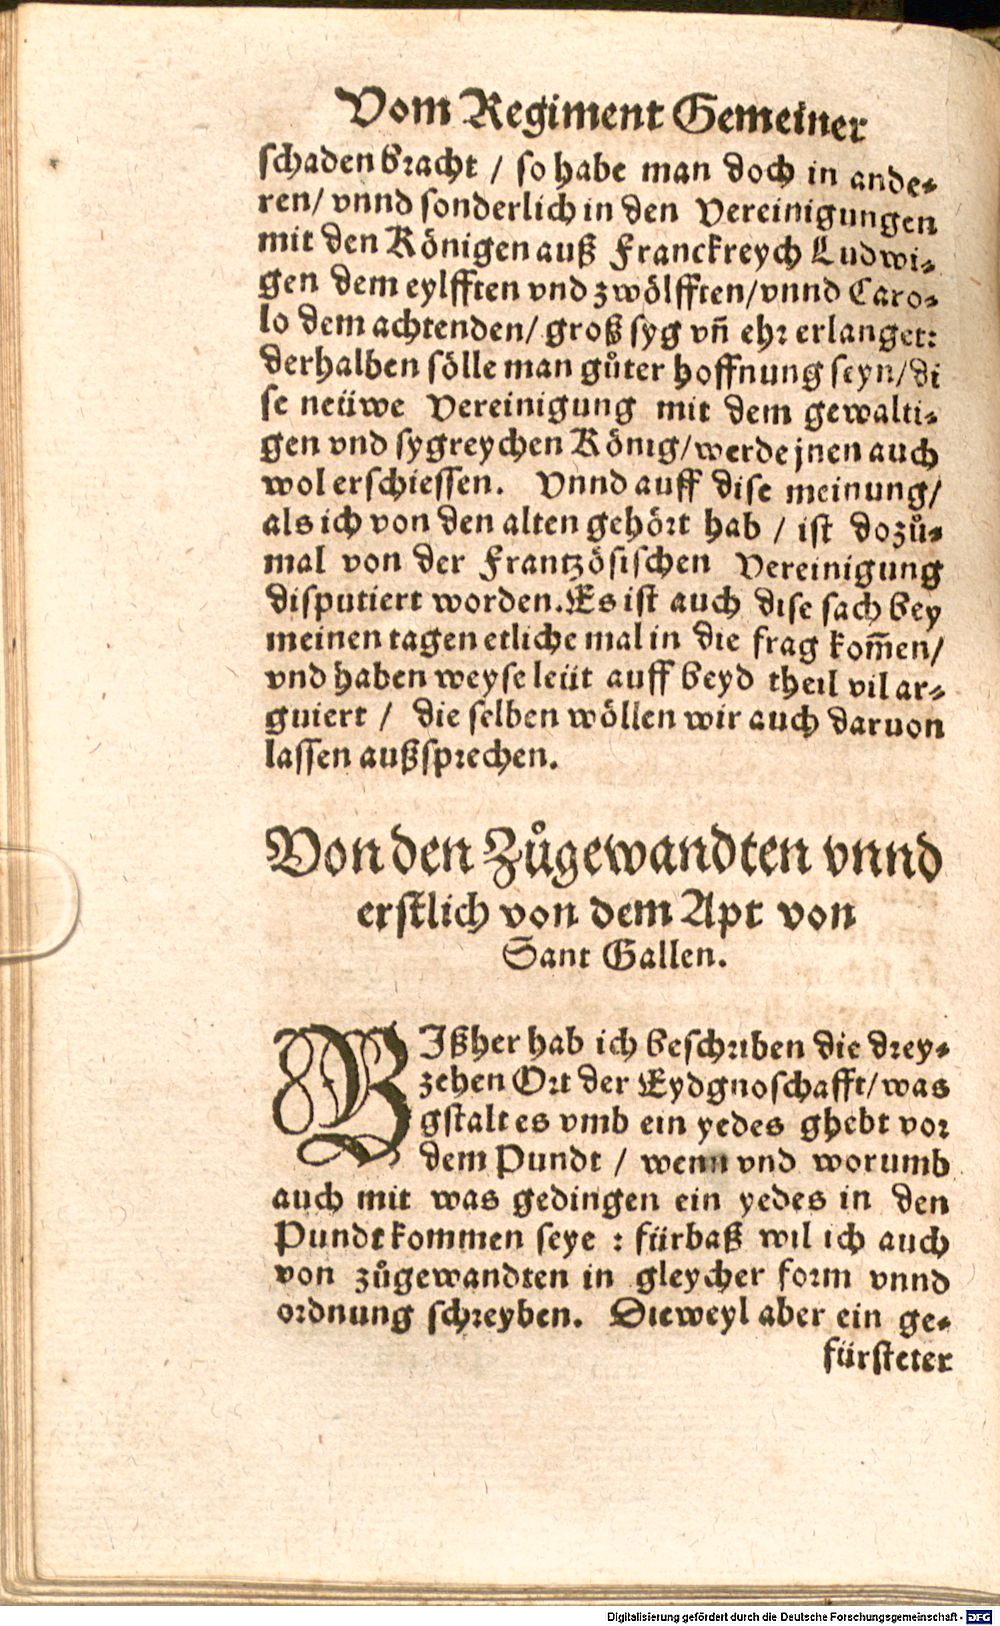 Vom Regiment Gemeiner
schaden bracht / so habe man doch in ande-
ren/ vnnd sonderlich in den Vereinigungen
mit den Königen auß Franckreych Ludwi-
gen dem eylfften vnd zwölfften/vnnd Caro-
lo dem achtenden/ groß syg vñ ehr erlanget:
derhalben sölle man gůter hoffnung seyn/di
se neüwe Vereinigung mit dem gewalti-
gen vnd sygreychen König/werde jnen auch
wol erschiessen. Vnnd auff dise meinung/
als ich von den alten gehört hab / ist dozů-
mal von der Frantzösischen Vereinigung
disputiert worden. Es ist auch dise sach bey
meinen tagen etliche mal in die frag kom̄en/
vnd haben weyse leüt auff beyd theil vil ar-
guiert / die selben wöllen wir auch daruon
lassen außsprechen.
Von den Zůgewandten vnnd
erstlich von dem Apt von
Sant Gallen.
BIßher hab ich beschriben die drey-
zehen Ort der Eydgnoschafft/was
gstalt es vmb ein yedes ghebt vor
dem Pundt / wenn vnd worumb
auch mit was gedingen ein yedes in den
Pundt kommen seye : fürbaß wil ich auch
von zůgewandten in gleycher form vnnd
ordnung schreyben. Dieweyl aber ein ge-
fürsteter
Digitalisierung gefördert durch die Deutsche Forschungsgemeinschaft - DFG